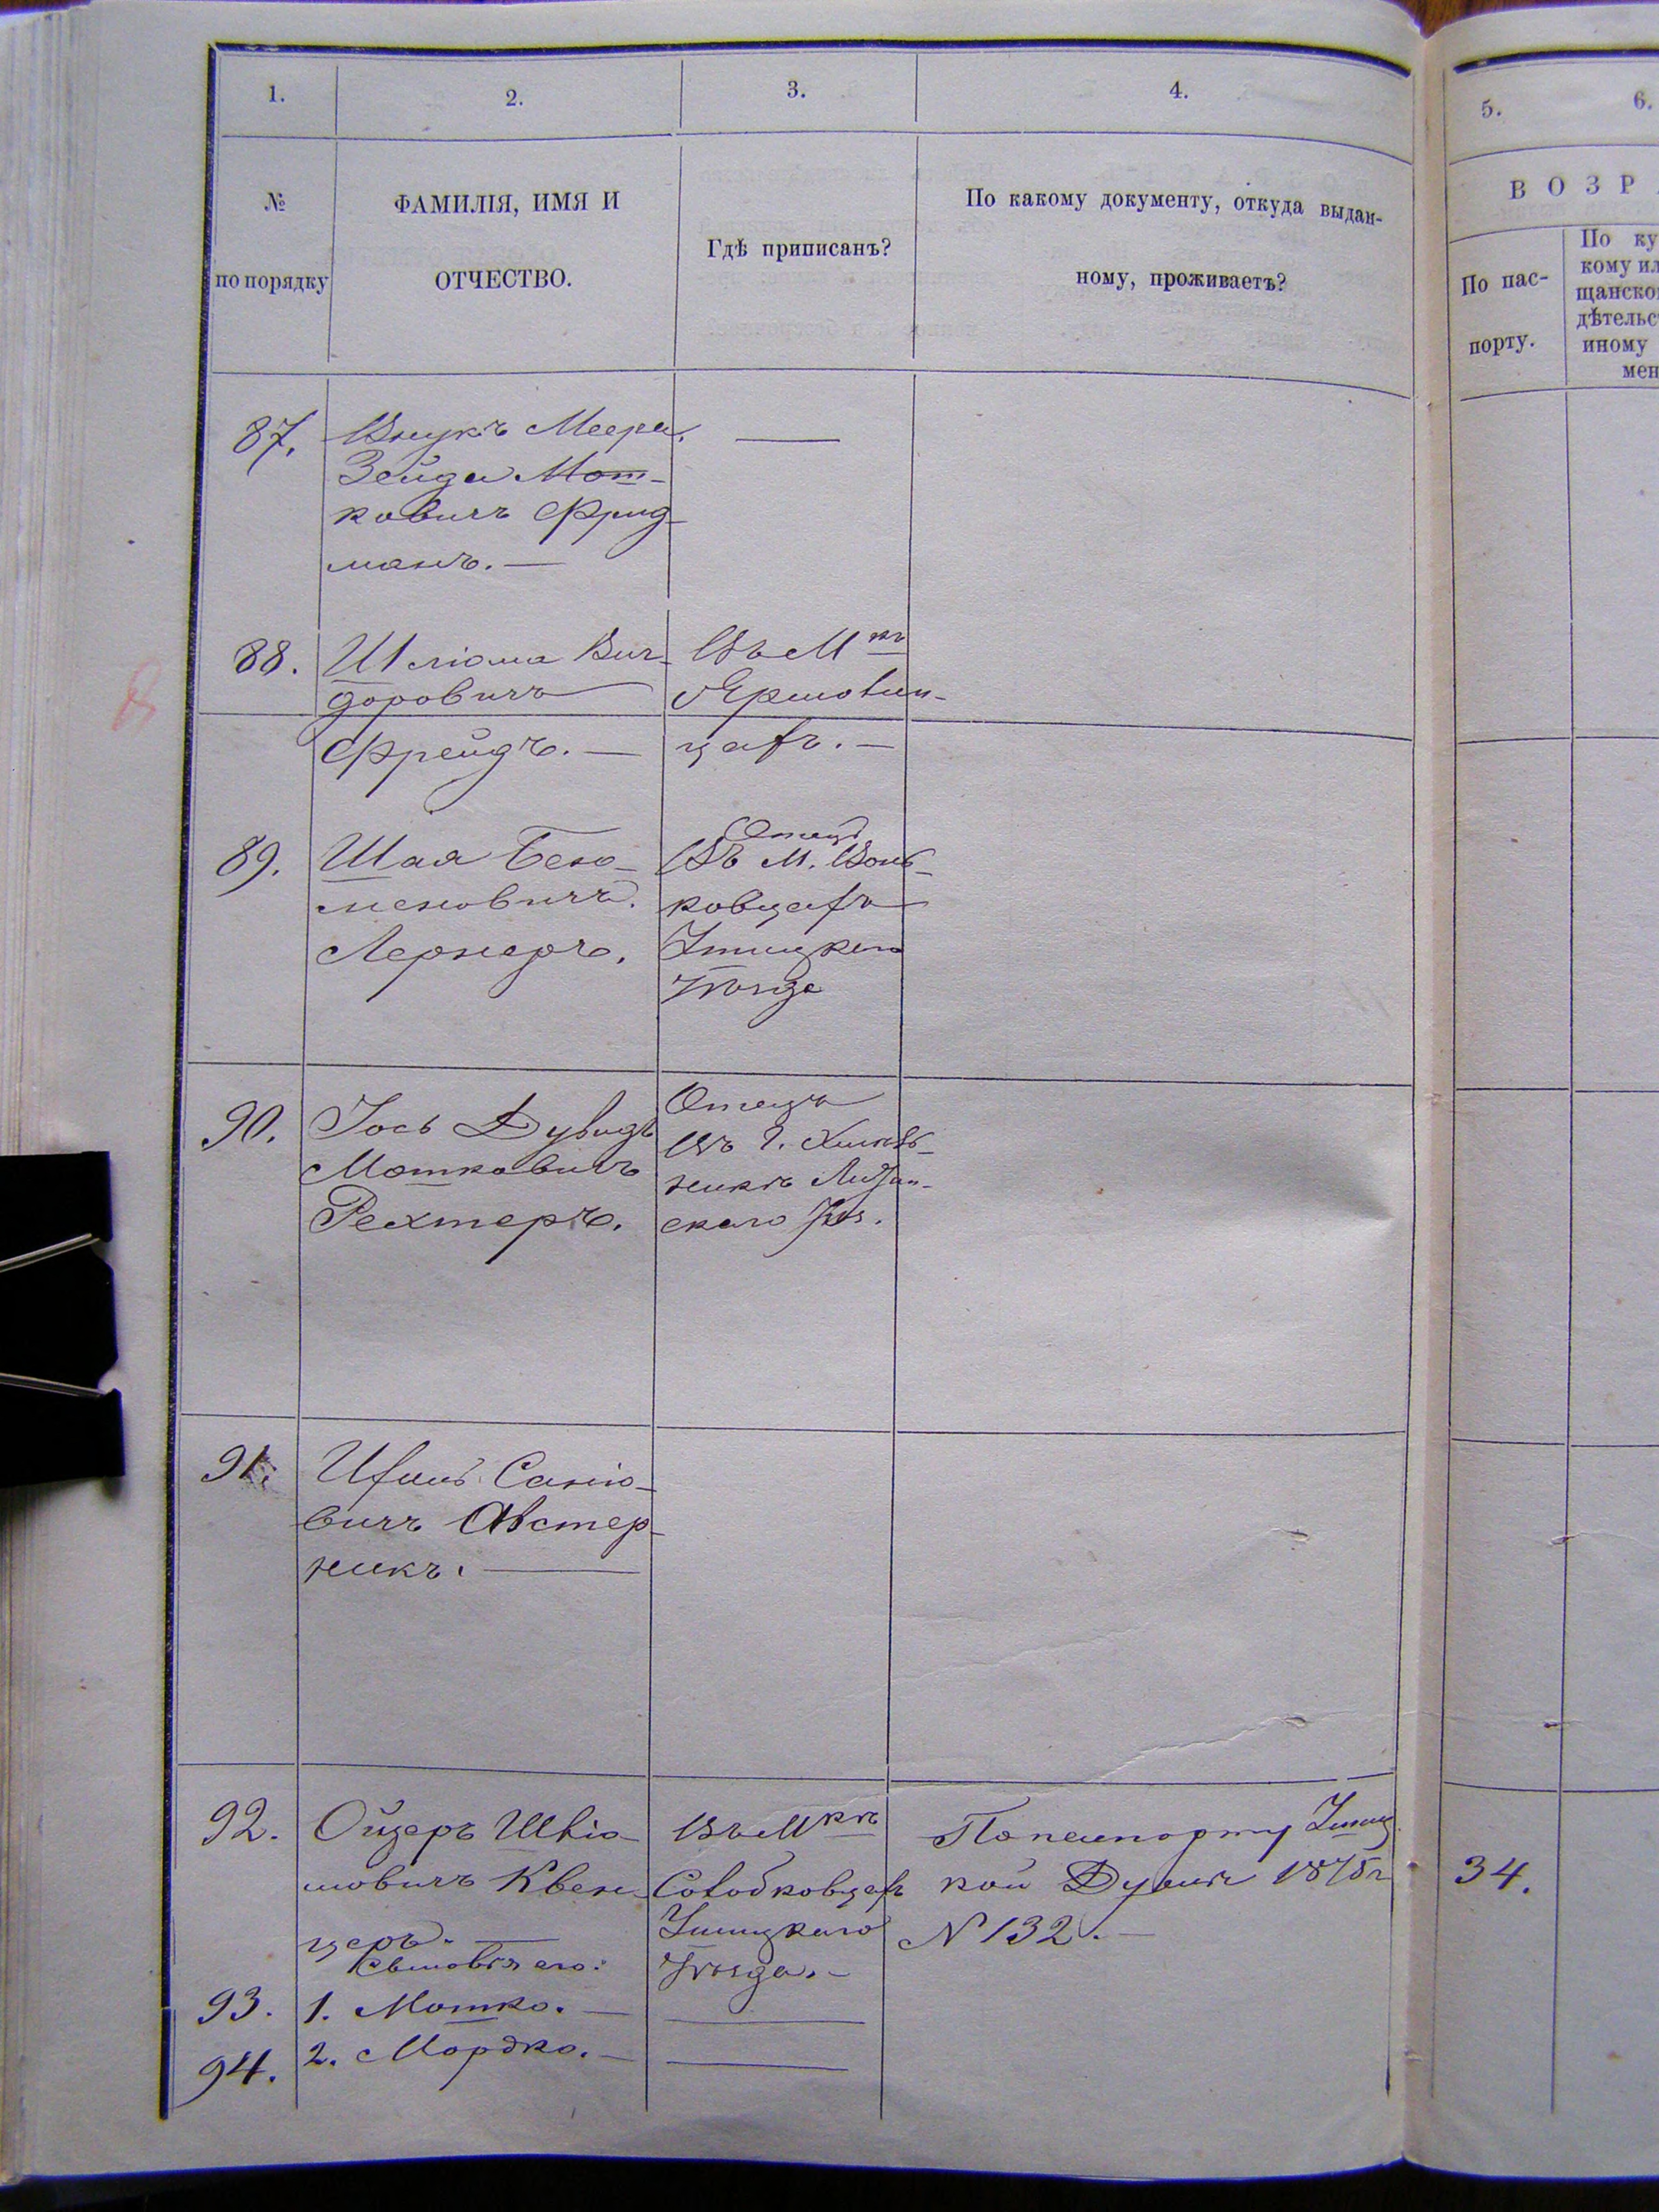 1.
2.
3.
4.
5.
6.
№
по порядку
ФАМИЛІЯ, ИМЯ И
ОТЧЕСТВО.
Гдѣ приписанъ?
По какому документу, откуда выдан-
ному, проживаетъ?
ВОЗР
По пас-
порту.
По ку
кому ил
щанско
дѣтельс
иному
мен
87.
Внукъ Меера
Зейда Мот-
ковичъ Фрид-
манъ. —
88.
Шліома Виг-
доровичъ
Фрейдъ. —
Въ М-кѣ
цахъ. —
89.
Шая Бень-
Лернеръ.
Отецъ
Въ М. Вонь-
ковцахъ
Ушицкаго
Уѣзда
90.
Іось Дувидъ
Мошковичъ
Рехтеръ.
Отецъ
Въ г. Хмѣль-
никѣ Литин-
скаго Уѣз.
91.
Ихиль Саніо-
вичъ Австер-
никъ. —
92.
Ойзеръ Шліо-
мовичъ Квен-
церъ. —
Сыновья его:
Въ М-кѣ
Солобковцахъ
Ушицкаго
Уѣзда. —
По паспорту Ушиц-
кой Думы 1875 г
№ 132. —
34.
93.
1. Мошко. —
94.
2. Мордко. —